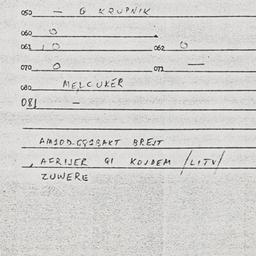 050 — G KRUPNIK
060 O
061 1 O 062 O
070 O 071 —
080 MELCUKER
081 —
BREJT
, AFRIJER GI KOJDEM /LITV/
ZUWERE